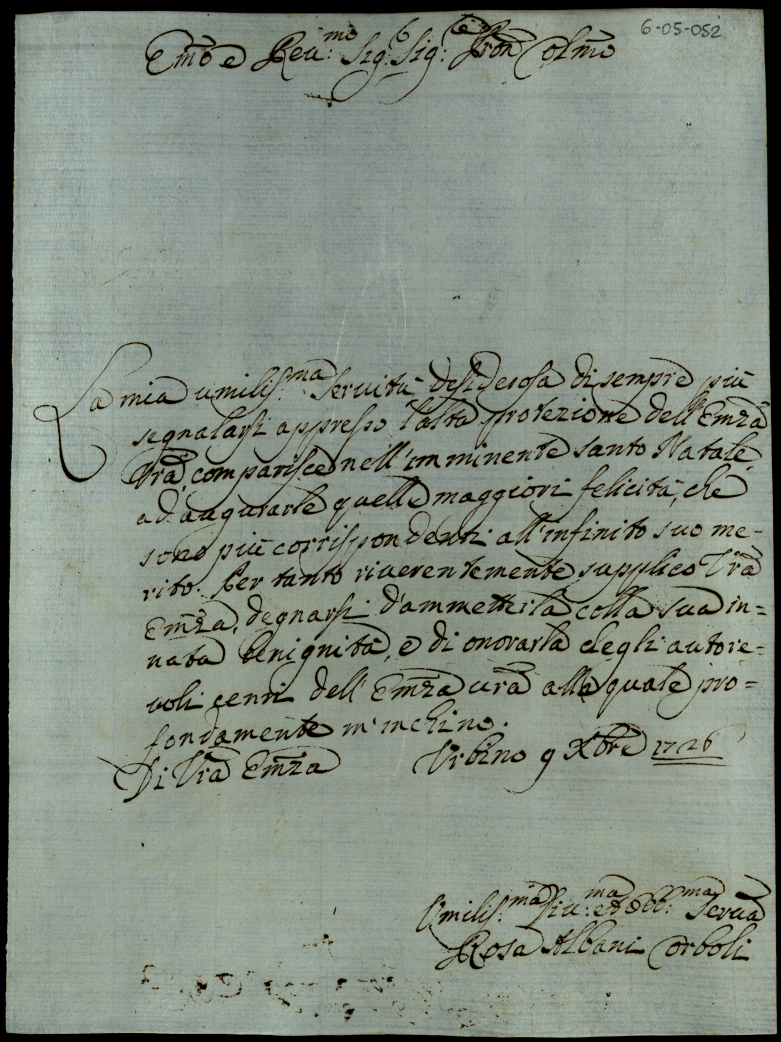 6-05-052
Emo e Reu:mo Sig: Sig: Pron Colmo
La mia umiliss.ma seruitù desiderosa di sempre più
segnalarsi appresso l'alta protezione dell'Emza
Vra, comparisce nell'imminente santo Natale
ad augurarle quelle maggiori felicità, che
sono più corrispondenti all'infinito suo me-
rito. Per tanto riuerentemente supplico Vra
Emza, degnarsi d'ammetterla colla sua in=
nata benignità, e di onorarla degli autore-
uoli cenni dell'Emza ura alla quale pro=
fondamente m'inchino.
Di Vra Emza Urbino 9 Xbre 1726
Umiliss.ma Diu:ma et obb:ma Serua
Rosa Albani Corboli